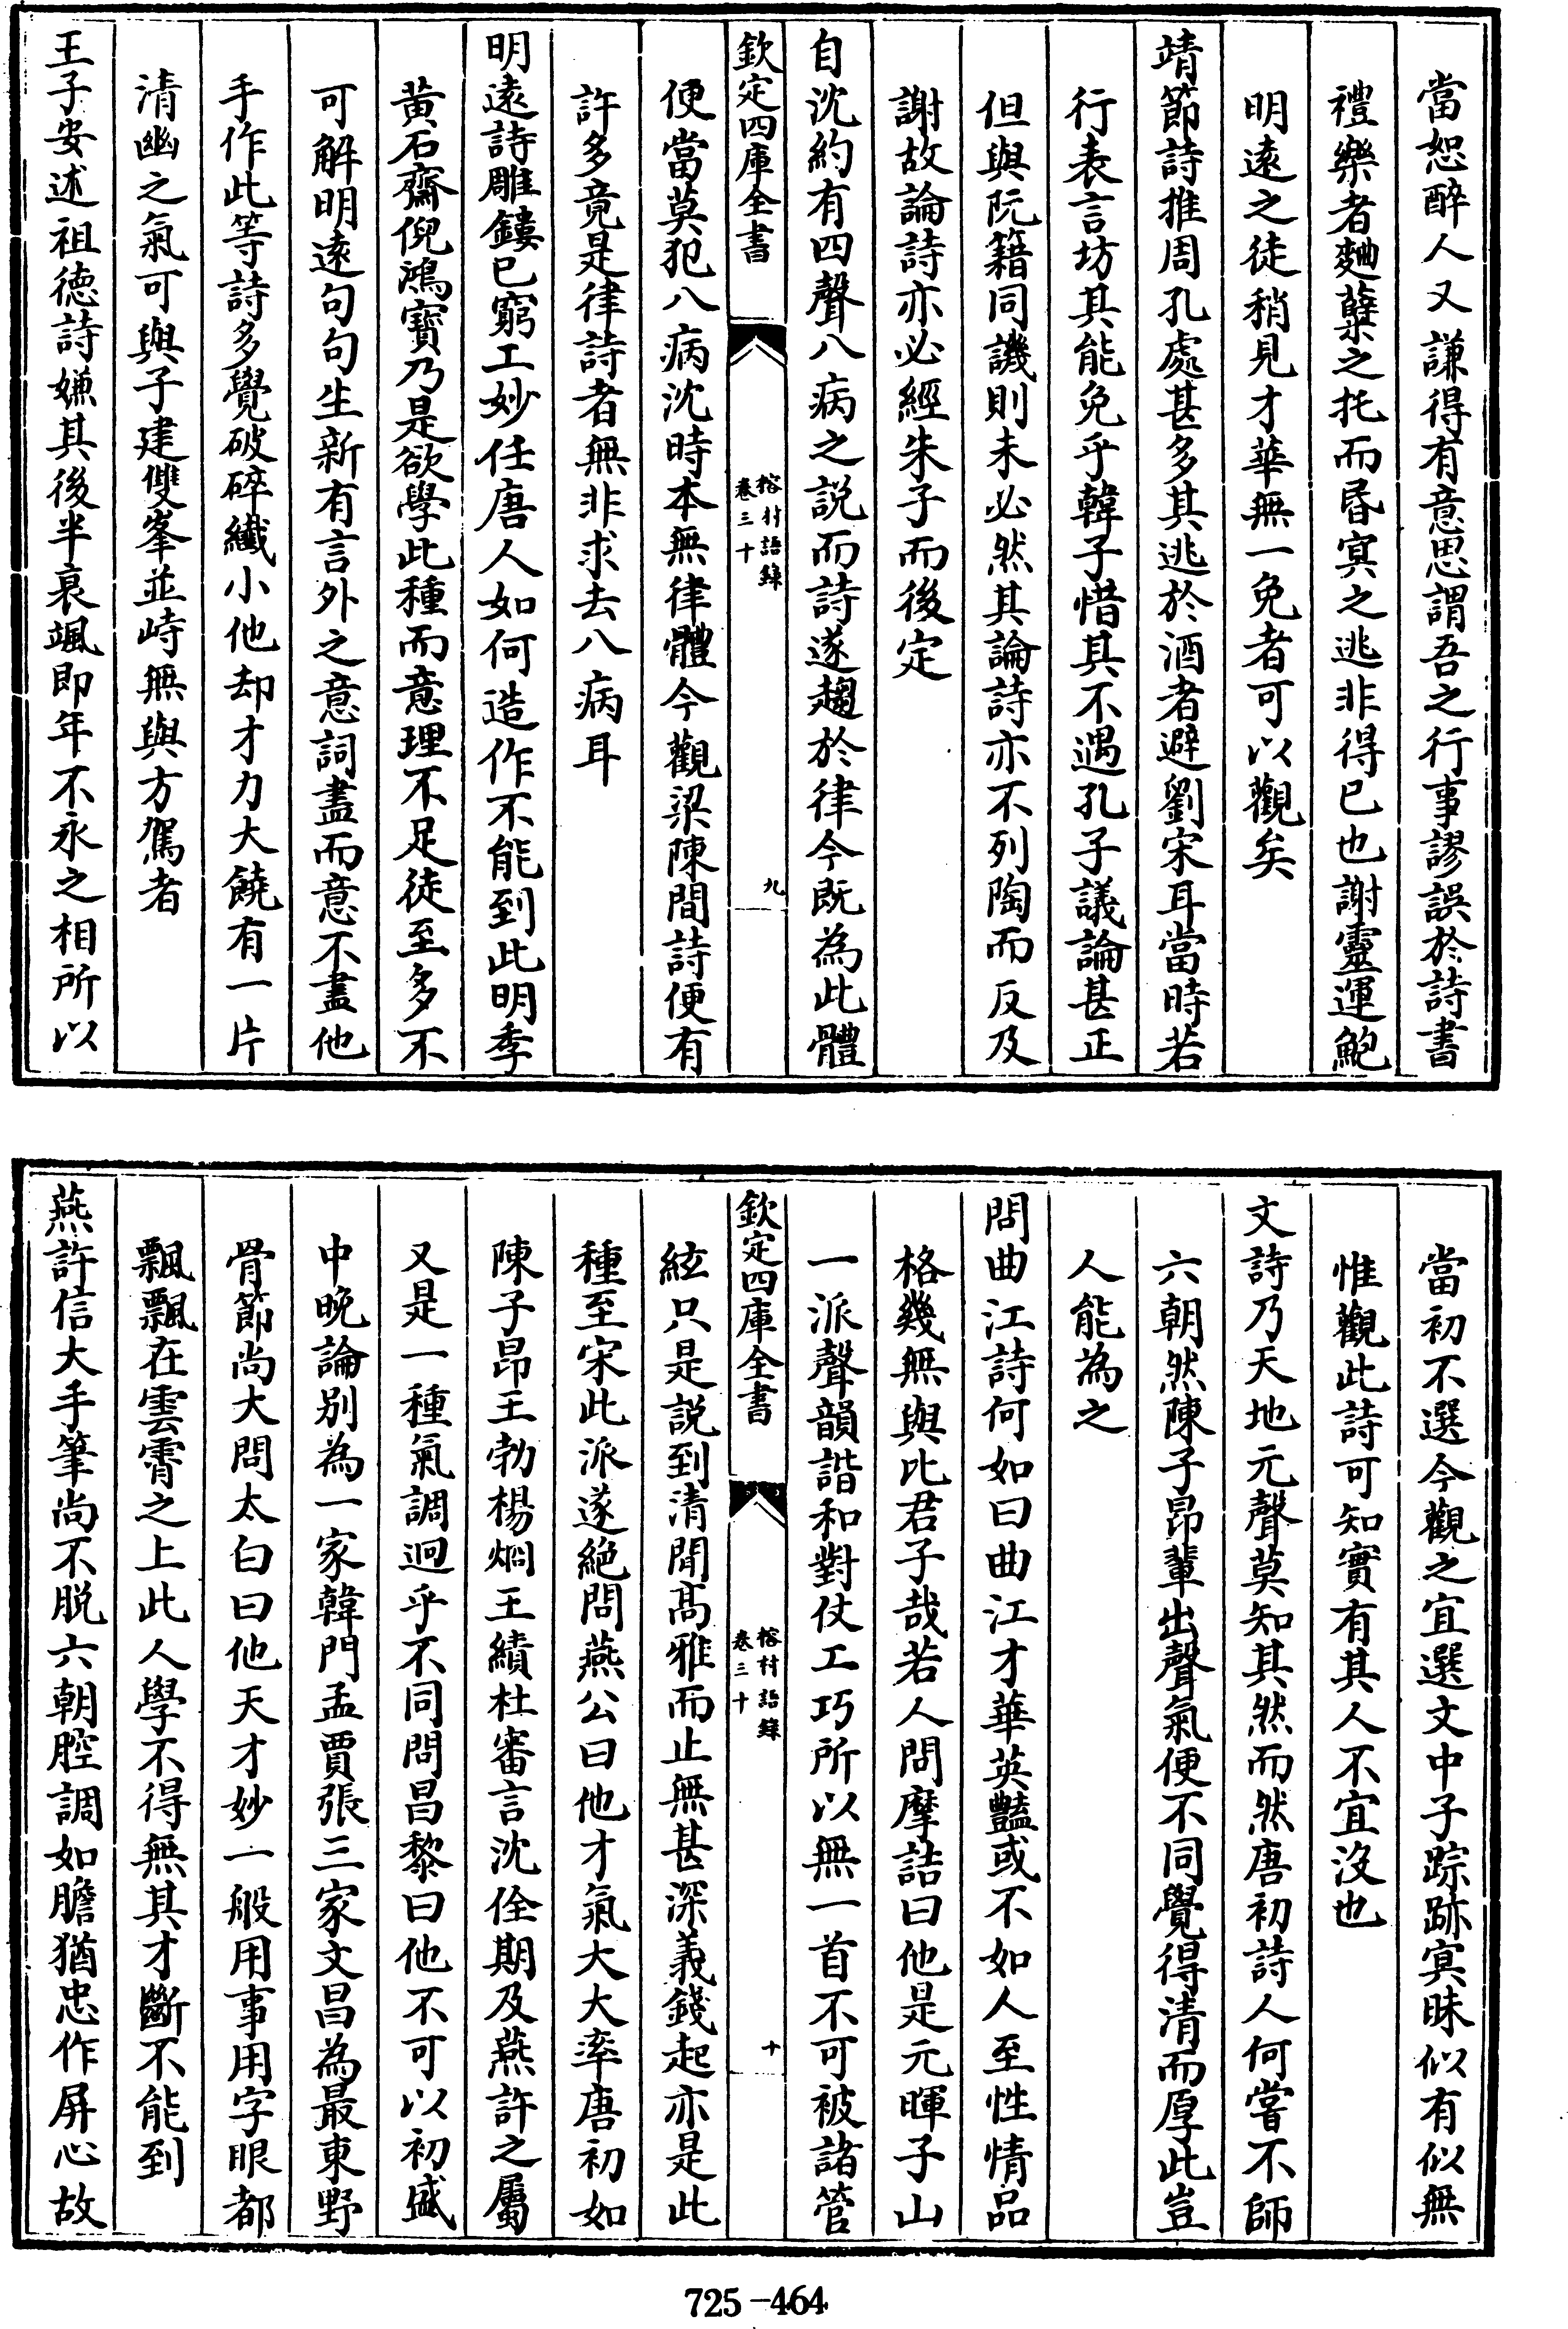 當恕醉人又謙得有意思謂吾之行事謬誤於詩書
禮樂者麯蘖之托而昏冥之逃非得已也謝靈運鮑
明遠之徒稍見才華無一免者可以觀矣
靖節詩推周孔處甚多其逃於酒者避劉宋耳當時若
行表言坊其能免乎韓子惜其不遇孔子議論甚正
但與阮籍同譏則未必然其論詩亦不列陶而反及
謝故論詩亦必經朱子而後定
自沈約有四聲八病之説而詩遂趨於律今既為此體
欽定四庫全書
榕村語錄
卷三十
九
便當莫犯八病沈時本無律體今觀梁陳間詩便有
許多竟是律詩者無非求去八病耳
明遠詩雕鏤已窮工妙任唐人如何造作不能到此明季
黃石齋倪鴻寶乃是欲學此種而意理不足徒至多不
可解明遠句句生新有言外之意詞盡而意不盡他
手作此等詩多覺破碎纖小他却才力大饒有一片
清幽之氣可與子建雙峯並峙無與方駕者
王子安述祖德詩嫌其後半衰颯即年不永之相所以
當初不選今觀之宜選文中子踪跡㝠昧似有似無
惟觀此詩可知實有其人不宜沒也
文詩乃天地元聲莫知其然而然唐初詩人何嘗不師
六朝然陳子昂輩出聲氣便不同覺得清而厚此豈
人能為之
問曲江詩何如曰曲江才華英豔或不如人至性情品
格幾無與比君子哉若人問摩詰曰他是元暉子山
一派聲韻諧和對仗工巧所以無一首不可被諸管
欽定四庫全書
榕村語錄
卷三十
十
絃只是説到清閒高雅而止無甚深義錢起亦是此
種至宋此派遂絶問燕公曰他才氣大大率唐初如
陳子昂王勃楊烱王績杜審言沈佺期及燕許之屬
又是一種氣調迥乎不同問昌黎曰他不可以初盛
中晚論別為一家韓門孟賈張三家文昌為最東野
骨節尚大問太白曰他天才妙一般用事用字眼都
飄飄在雲霄之上此人學不得無其才斷不能到
燕許信大手筆尚不脫六朝腔調如膽猶忠作屏心故
725-464